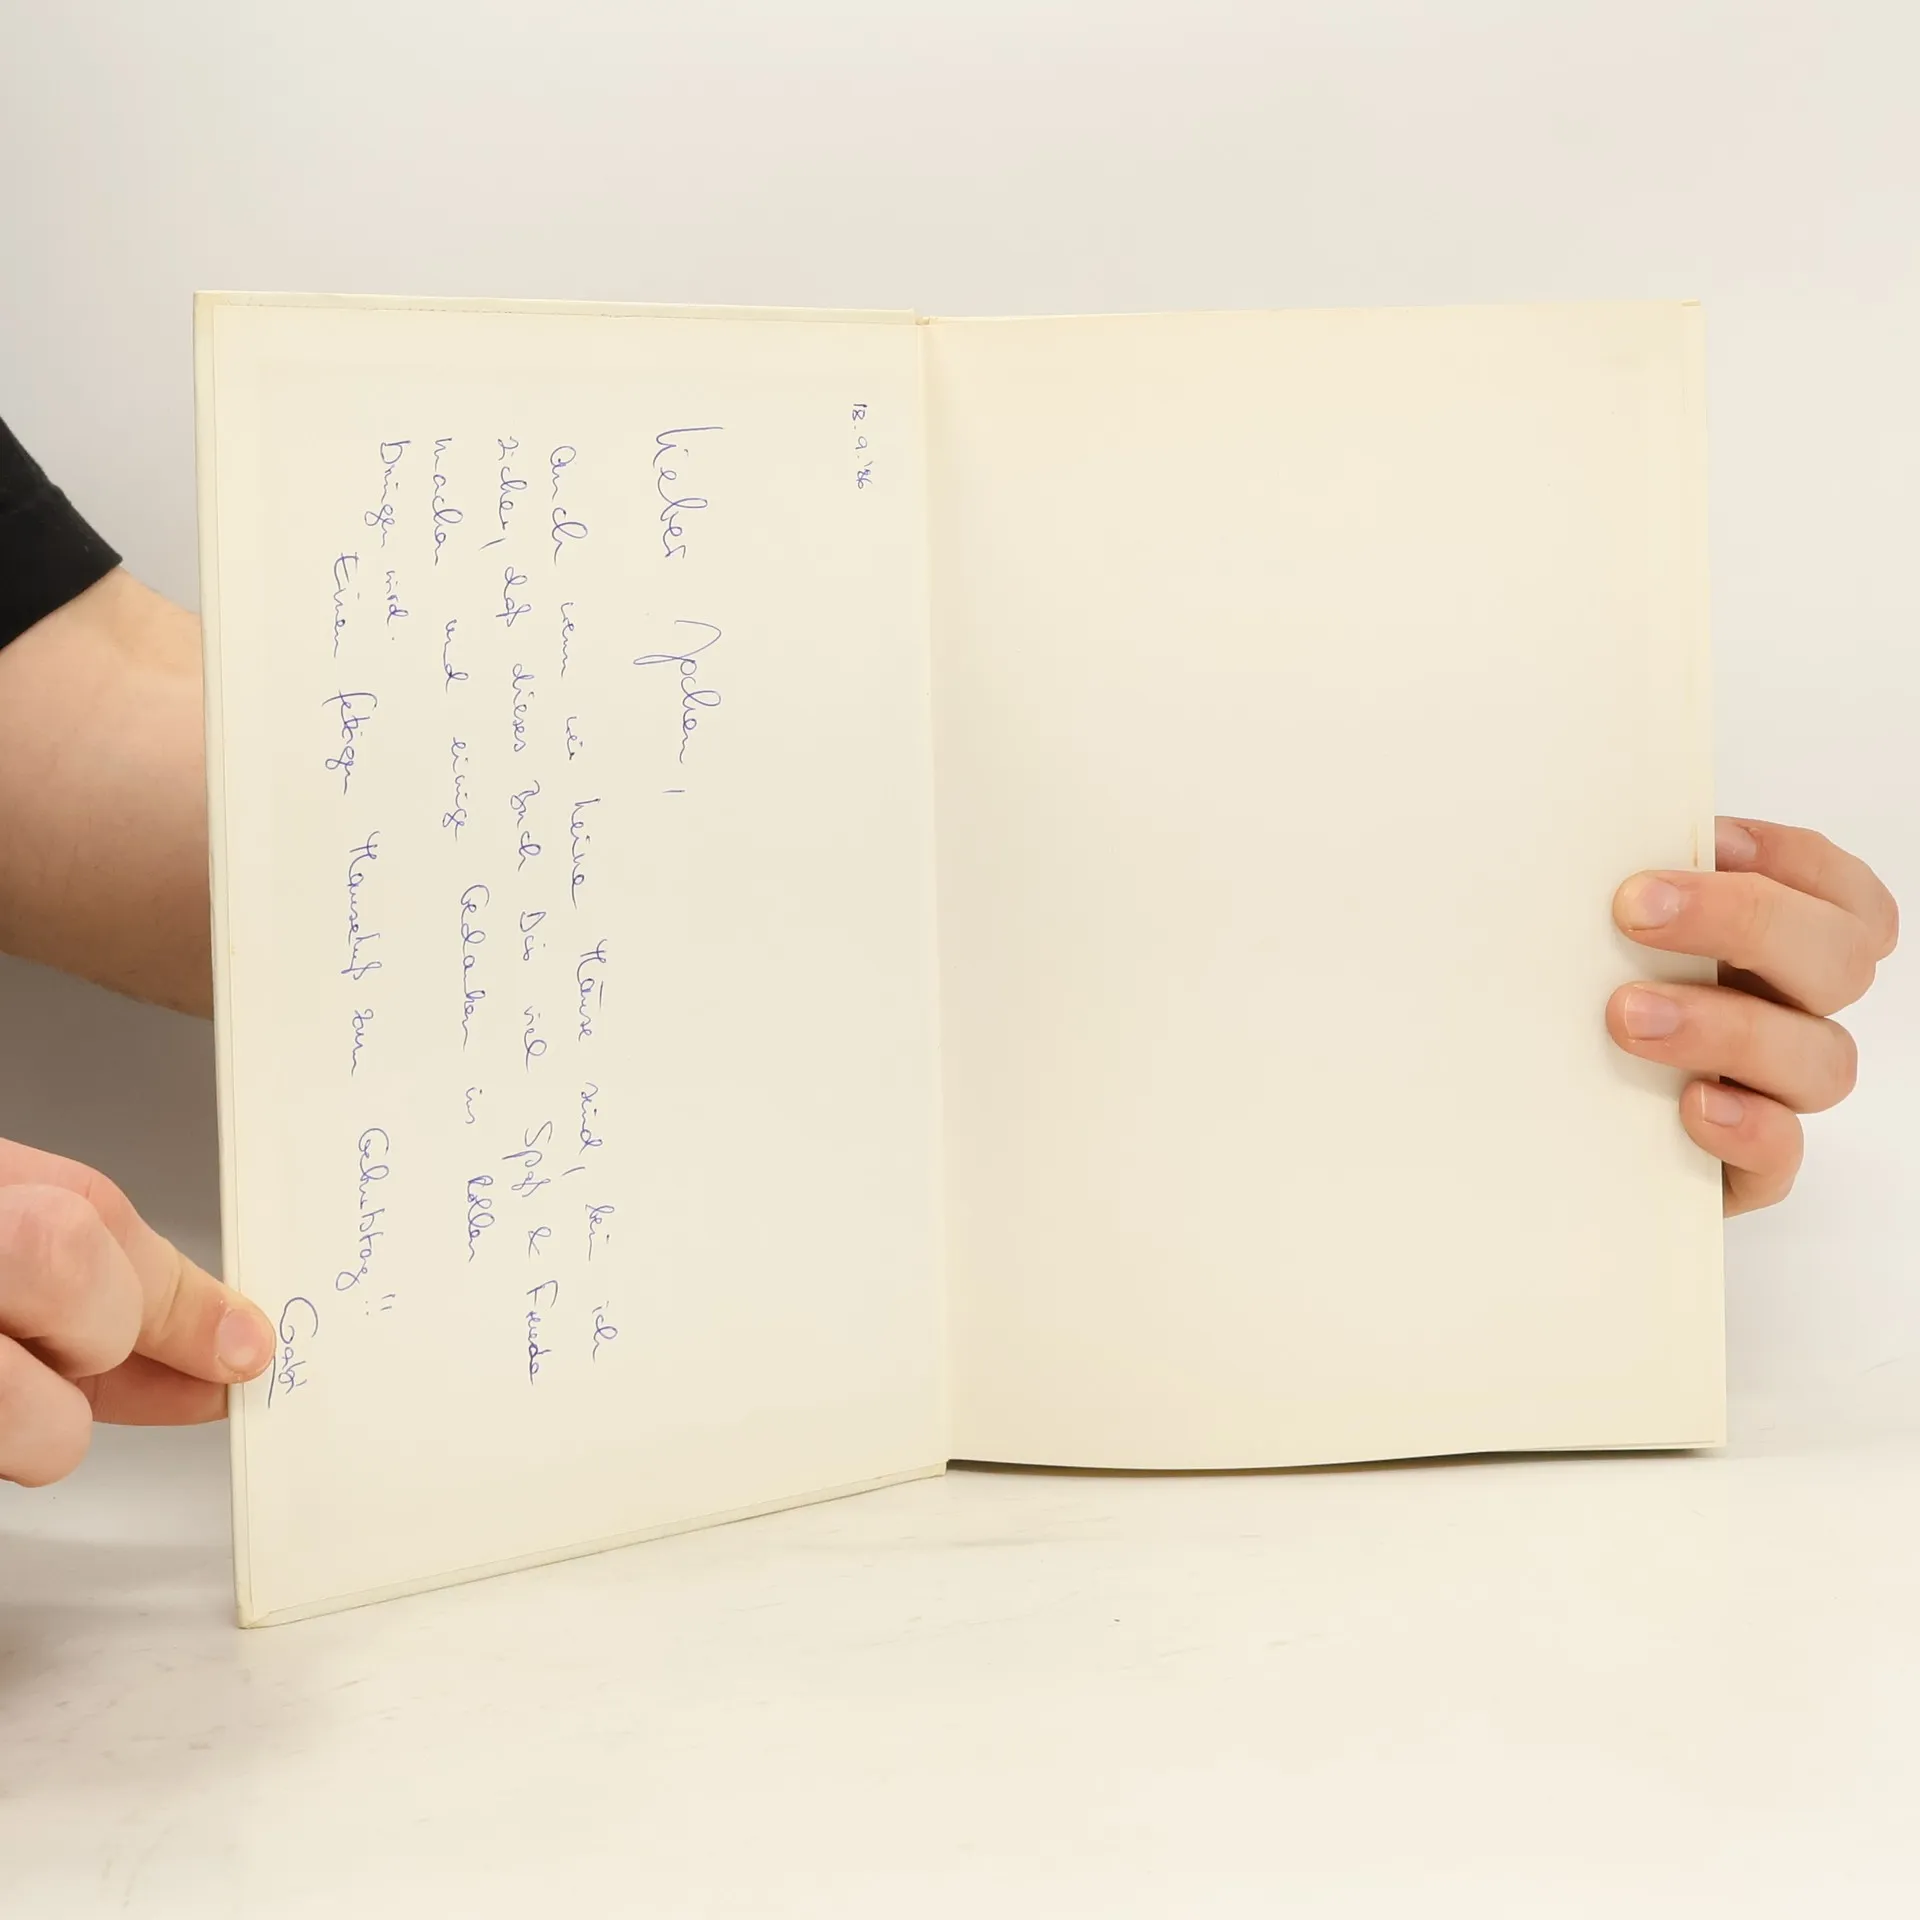 18.9.'86
Lieber Jochen,
Auch wenn wir keine Mäuse sind, bin ich
sicher, daß dieses Buch Dir viel Spaß & Freude
machen und einige Gedanken ins Rollen
bringen wird.
Einen fetzigen Mausekuß zum Geburtstag!!
Gabi